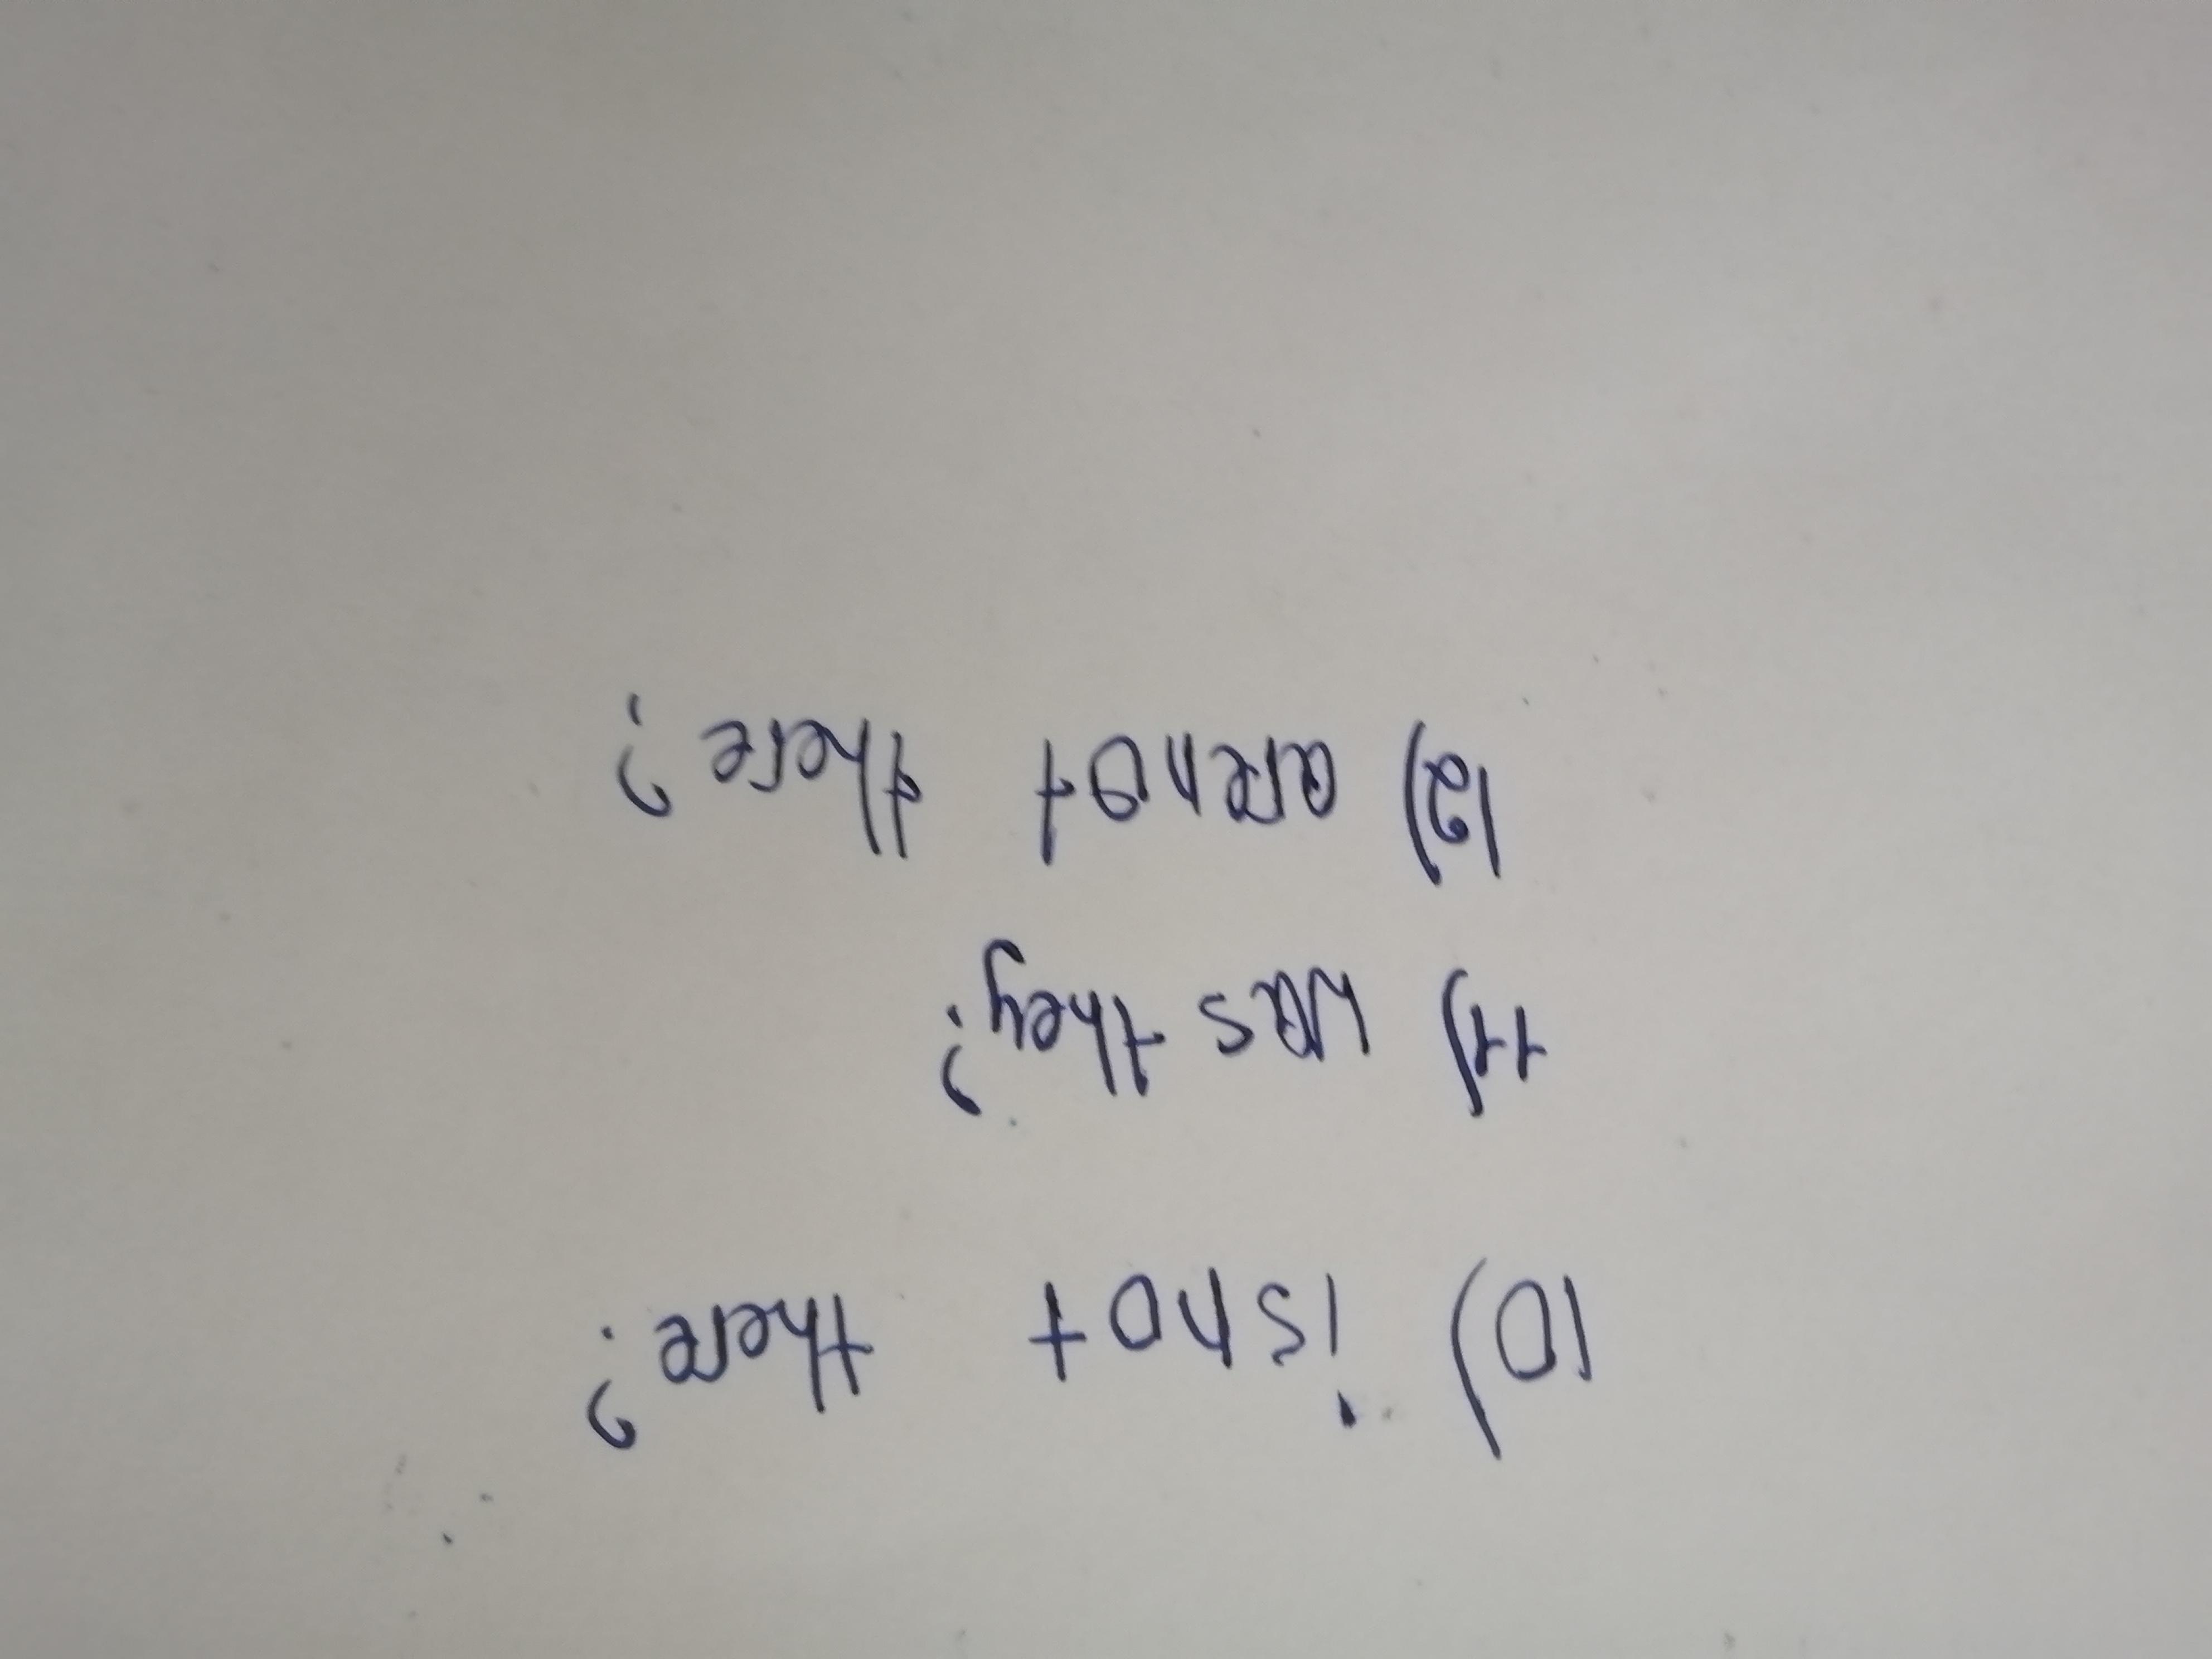 10) isnot there?
11) has they?
12) arenot there?